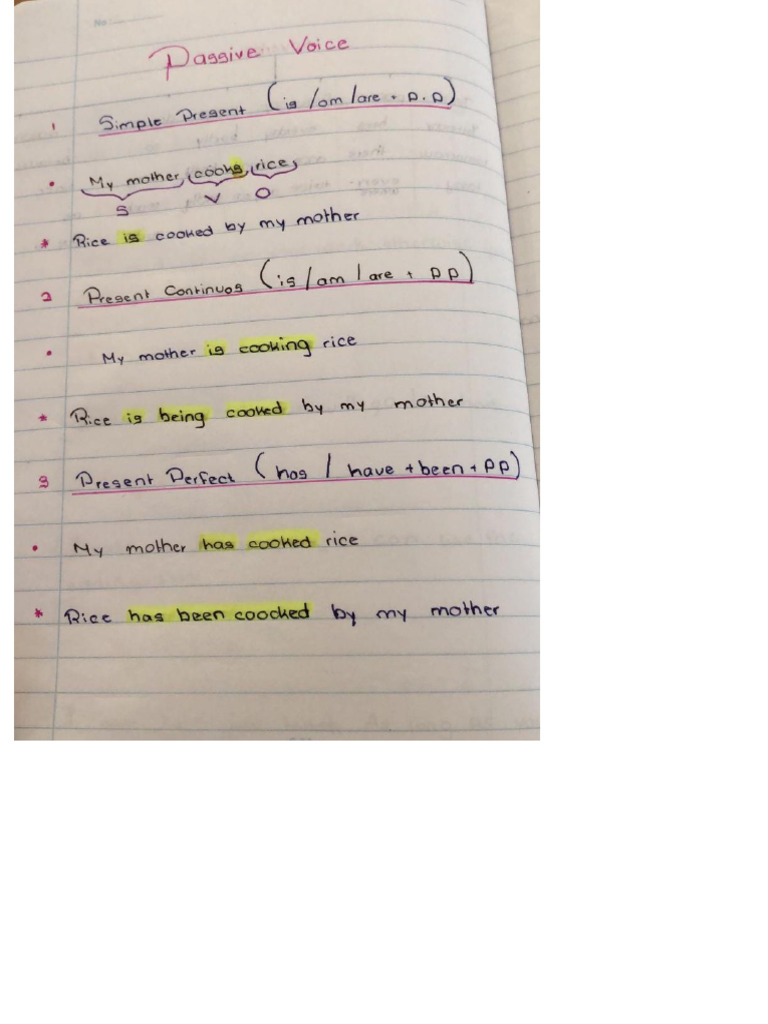 No:
Passive Voice
1 Simple Present (is/am/are + p.p)
• My mother cooks rice
S V O
* Rice is cooked by my mother
2 Present Continuos (is/am/are + pp)
• My mother is cooking rice
* Rice is being cooked by my mother
3 Present Perfect (has / have + been + pp)
• My mother has cooked rice
* Rice has been coocked by my mother